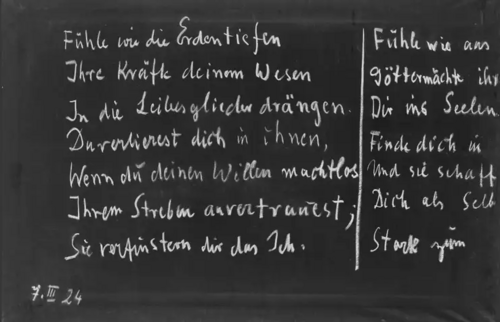 Fühle wie die Erdentiefen
Ihre Kräfte deinem Wesen
In die Leibesglieder drängen.
Du verlierest dich in ihnen,
Wenn du deinen Willen machtlos
Ihrem Streben anvertrauest;
Sie verfinstern dir das Ich.
7. III 24
Fühle wie aus
Göttermächte ihr
Dir ins Seelen
Finde dich in
Und sie schaff
Dich als Selb
Stark zum